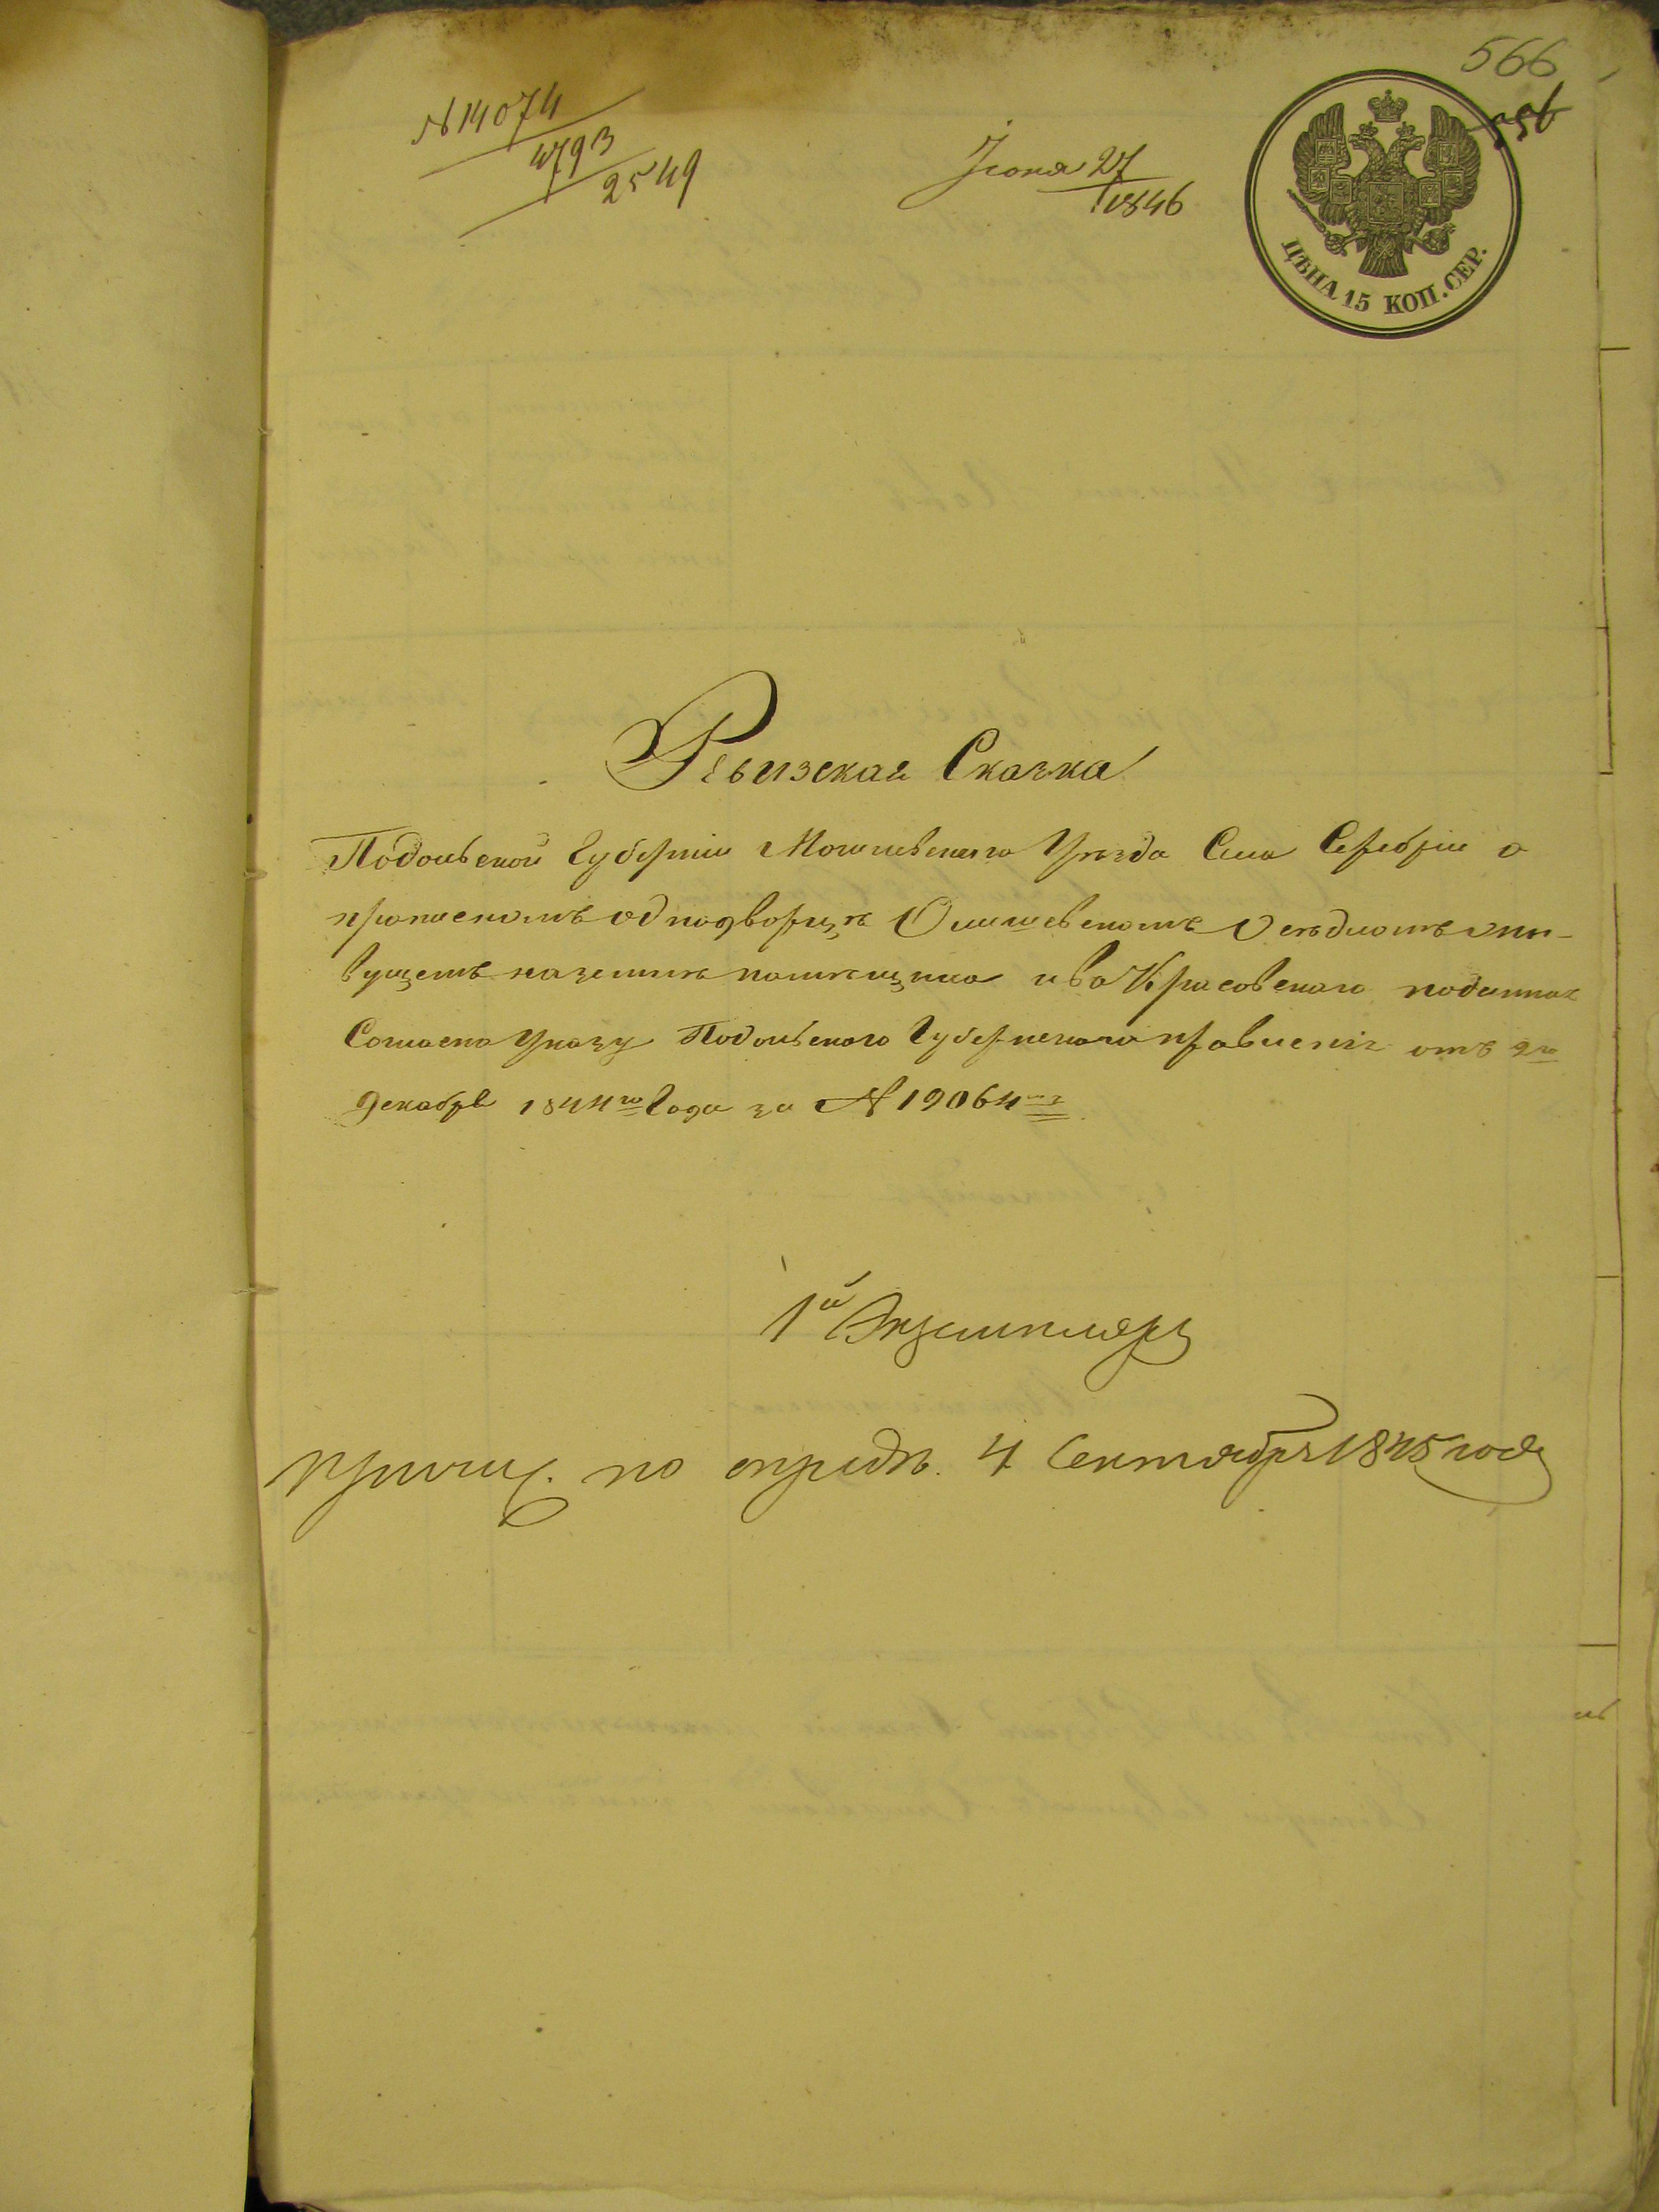 566
№ 14074
4793
2549
Іюня 27
1846
ЦѢНА 15 КОП. СЕР.
Ревизская Сказка
Подольской Губерніи Могилевского Уѣзда Села Серебріи о
однодворцѣ Олишевскомъ Осѣдломъ жи-
вущемъ на землѣ помѣщика Красовского
Согласно Указу Подольского Губернского правленія отъ 2го
Декабря 1844го Года за № 19064мъ
1й Экземпляръ
причис. по опредѣ. 4 Сентября 1845 года